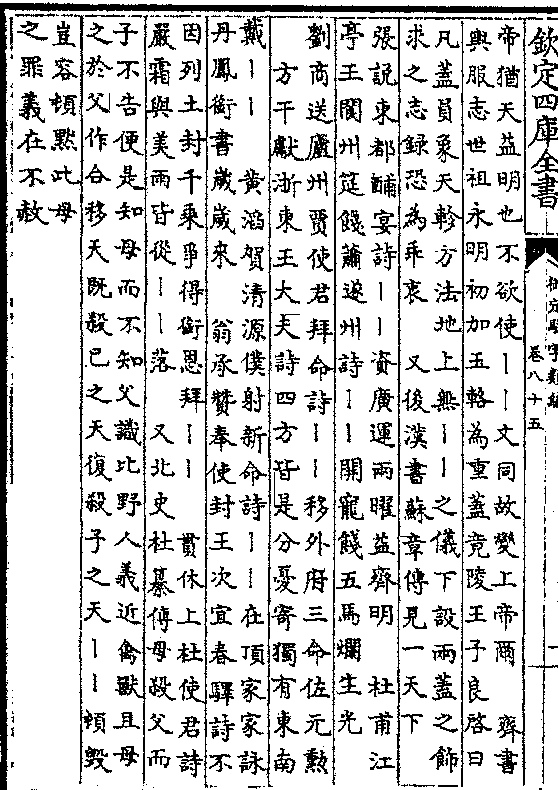 欽定四庫全書
卷八十五
帝猶天益明也不欲使丨丨文同故變上帝爾 齊書
輿服志世祖永明初加玉輅為重蓋竟陵王子良啓曰
凡蓋員象天軫方法地上無丨丨之儀下設兩蓋之飾
求之志錄恐為乖衷 又後漢書蘇章傳見一天下
張說東都酺宴詩丨丨資廣運兩曜益齊明 杜甫江
亭王閬州筵餞蕭遂州詩丨丨開寵餞五馬爛生光
劉商送廬州賈使君拜命詩丨丨移外府三命佐元勲
方干獻浙東王大夫詩四方皆是分憂寄獨有東南
戴丨丨 黃滔賀清源僕射新命詩丨丨在頂家家詠
丹鳳銜書歲歲來 翁承贊奉使封王次宜春驛詩不
因列土封千乘爭得銜恩拜丨丨 貫休上杜使君詩
嚴霜與美雨皆從丨丨落 又北史杜纂傳母殺父而
子不告便是知母而不知父識比野人義近禽獸且母
之於父作合移天既殺已之天復殺子之天丨丨頓毁
豈容頓黙此母
之罪義在不赦